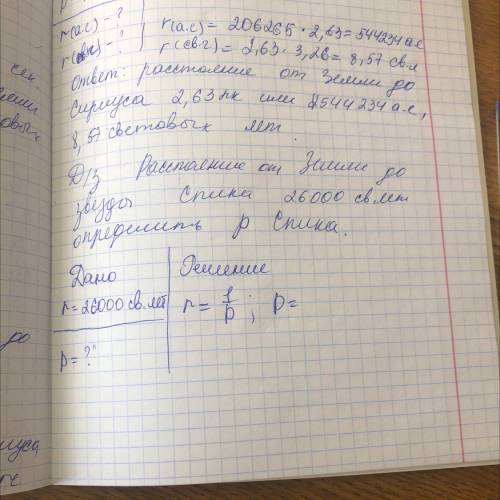 r(а.с) - ?
r(а.с) = 206265 · 2,63 = 544234 а.с
r(св.г) = 2,63 · 3,26 = 8,57 св.л
Ответ: расстояние от Земли до
Сириуса 2,63 пк или 544234 а.с,
8,57 световых лет.
Д/з Расстояние от Земли до
звезды Спика 26000 св.лет
определить p Спика.
Дано
r = 26000 св.лет
p = ?"
Решение
r = 1/p ; p =
до